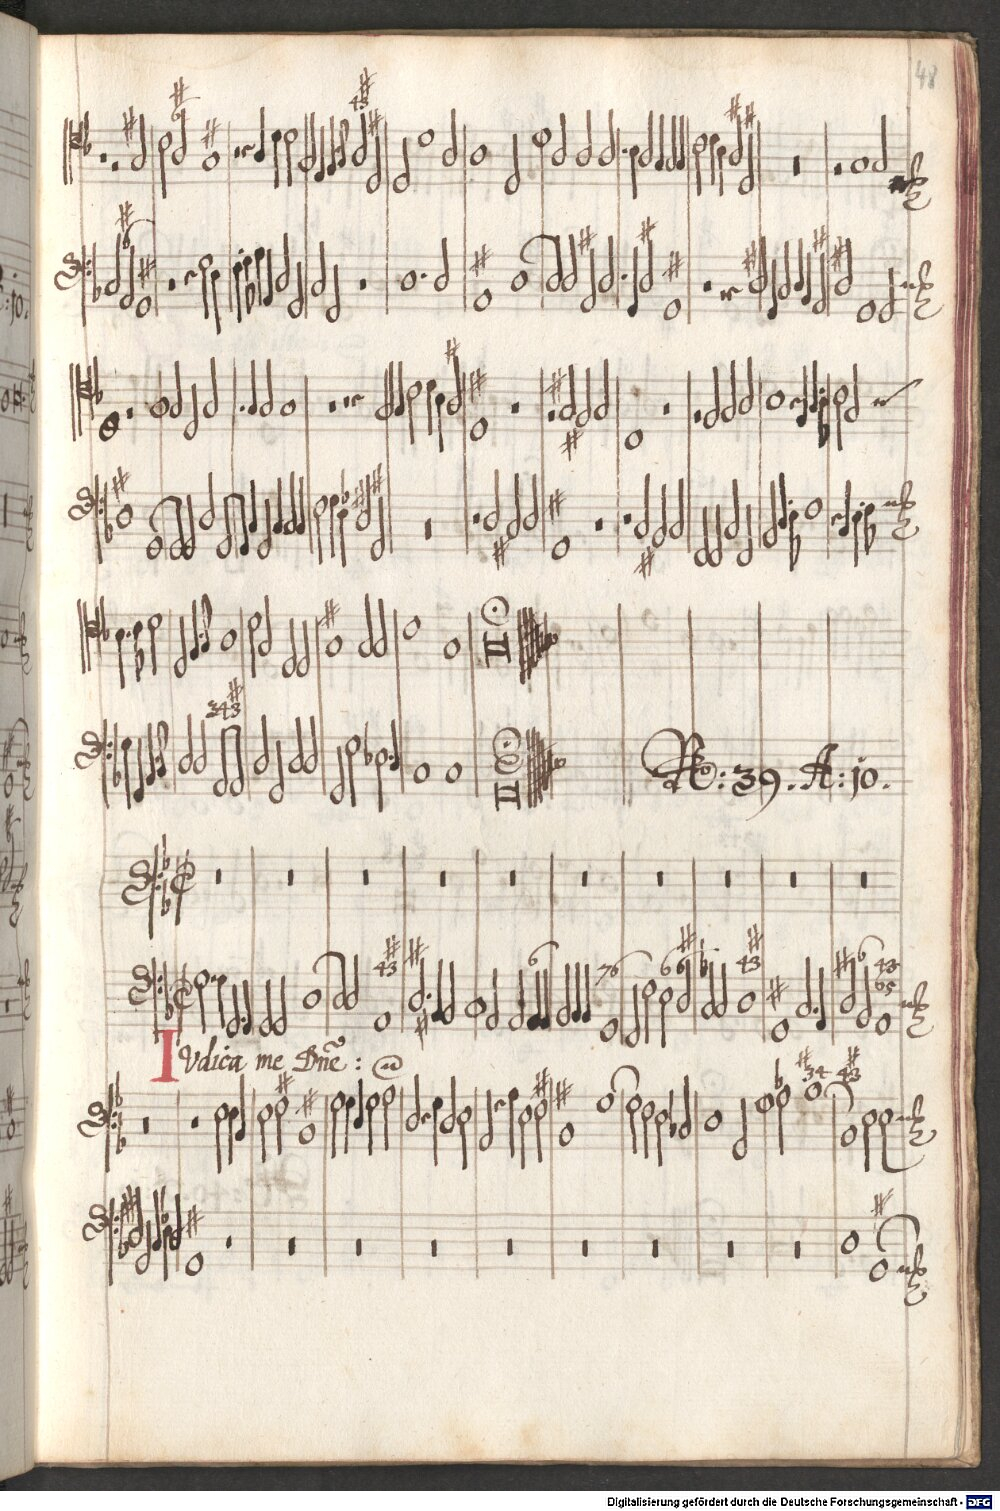 48
R: 39. A: jo.
IVdica me Dñe:
Digitalisierung gefördert durch die Deutsche Forschungsgemeinschaft - DFG